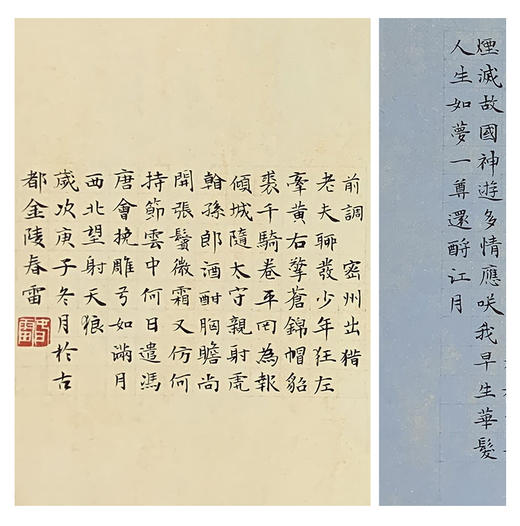 煙滅故國神遊多情應咲我早生華髮
人生如夢一尊還酹江月
前調 密州出猎
老夫聊發少年狂左
牽黃右擎蒼錦帽貂
裘千騎卷平罔為報
傾城隨太守親射虎
孫郎酒酣胸膽尚
開張鬢微霜又仿何
持節雲中何日遣馮
唐會挽雕弓如滿月
西北望射天狼
歲次庚子冬月於古
都金陵春雷
春雷